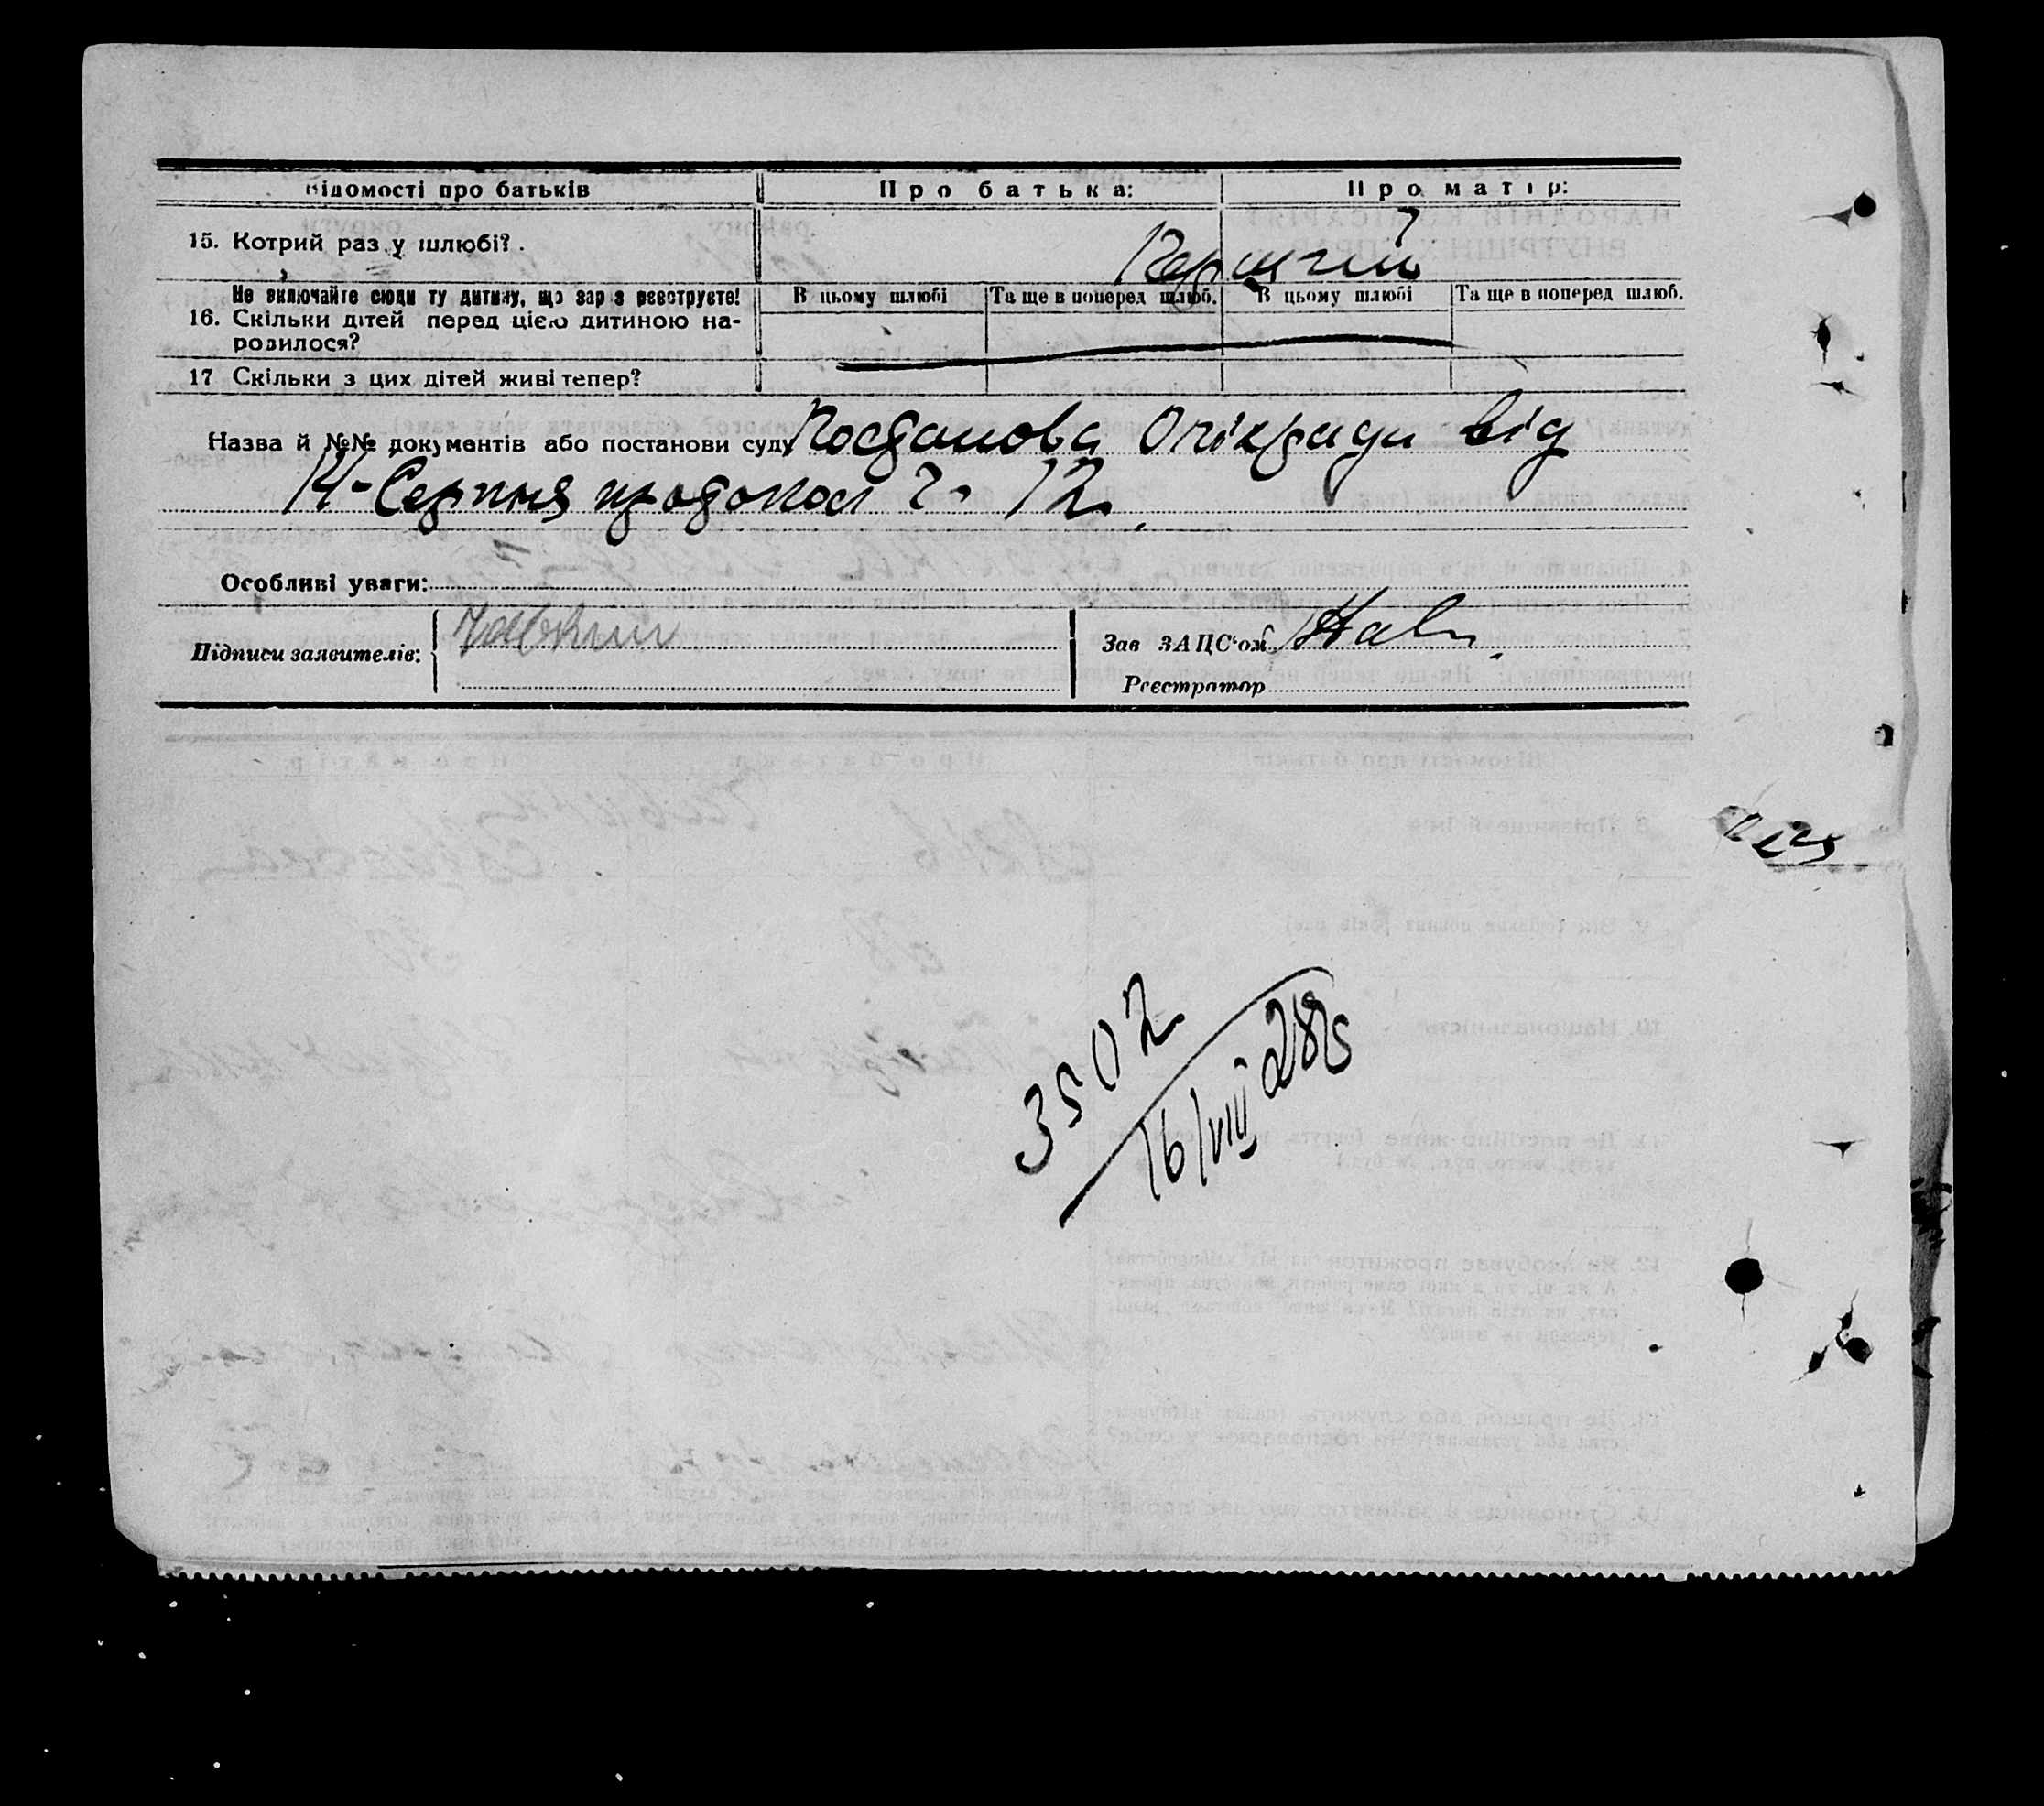 Відомості про батьків Про батька: Про матір:
15. Котрий раз у шлюбі? Перший
Не включайте сюди ту дитину, що зараз реєструєте! В цьому шлюбі Та ще в поперед шлюб. В цьому шлюбі Та ще в поперед шлюб.
16. Скільки дітей перед цією дитиною на-
родилося?
17 Скільки з цих дітей живі тепер?
Назва й №№ документів або постанови суду Постанова Опікради від
14-Серпня протокол ч. 12.
Особливі уваги:
Підписи заявителів: Зав ЗАЦС'ом
Реєстратор
3502
16/VIII 28